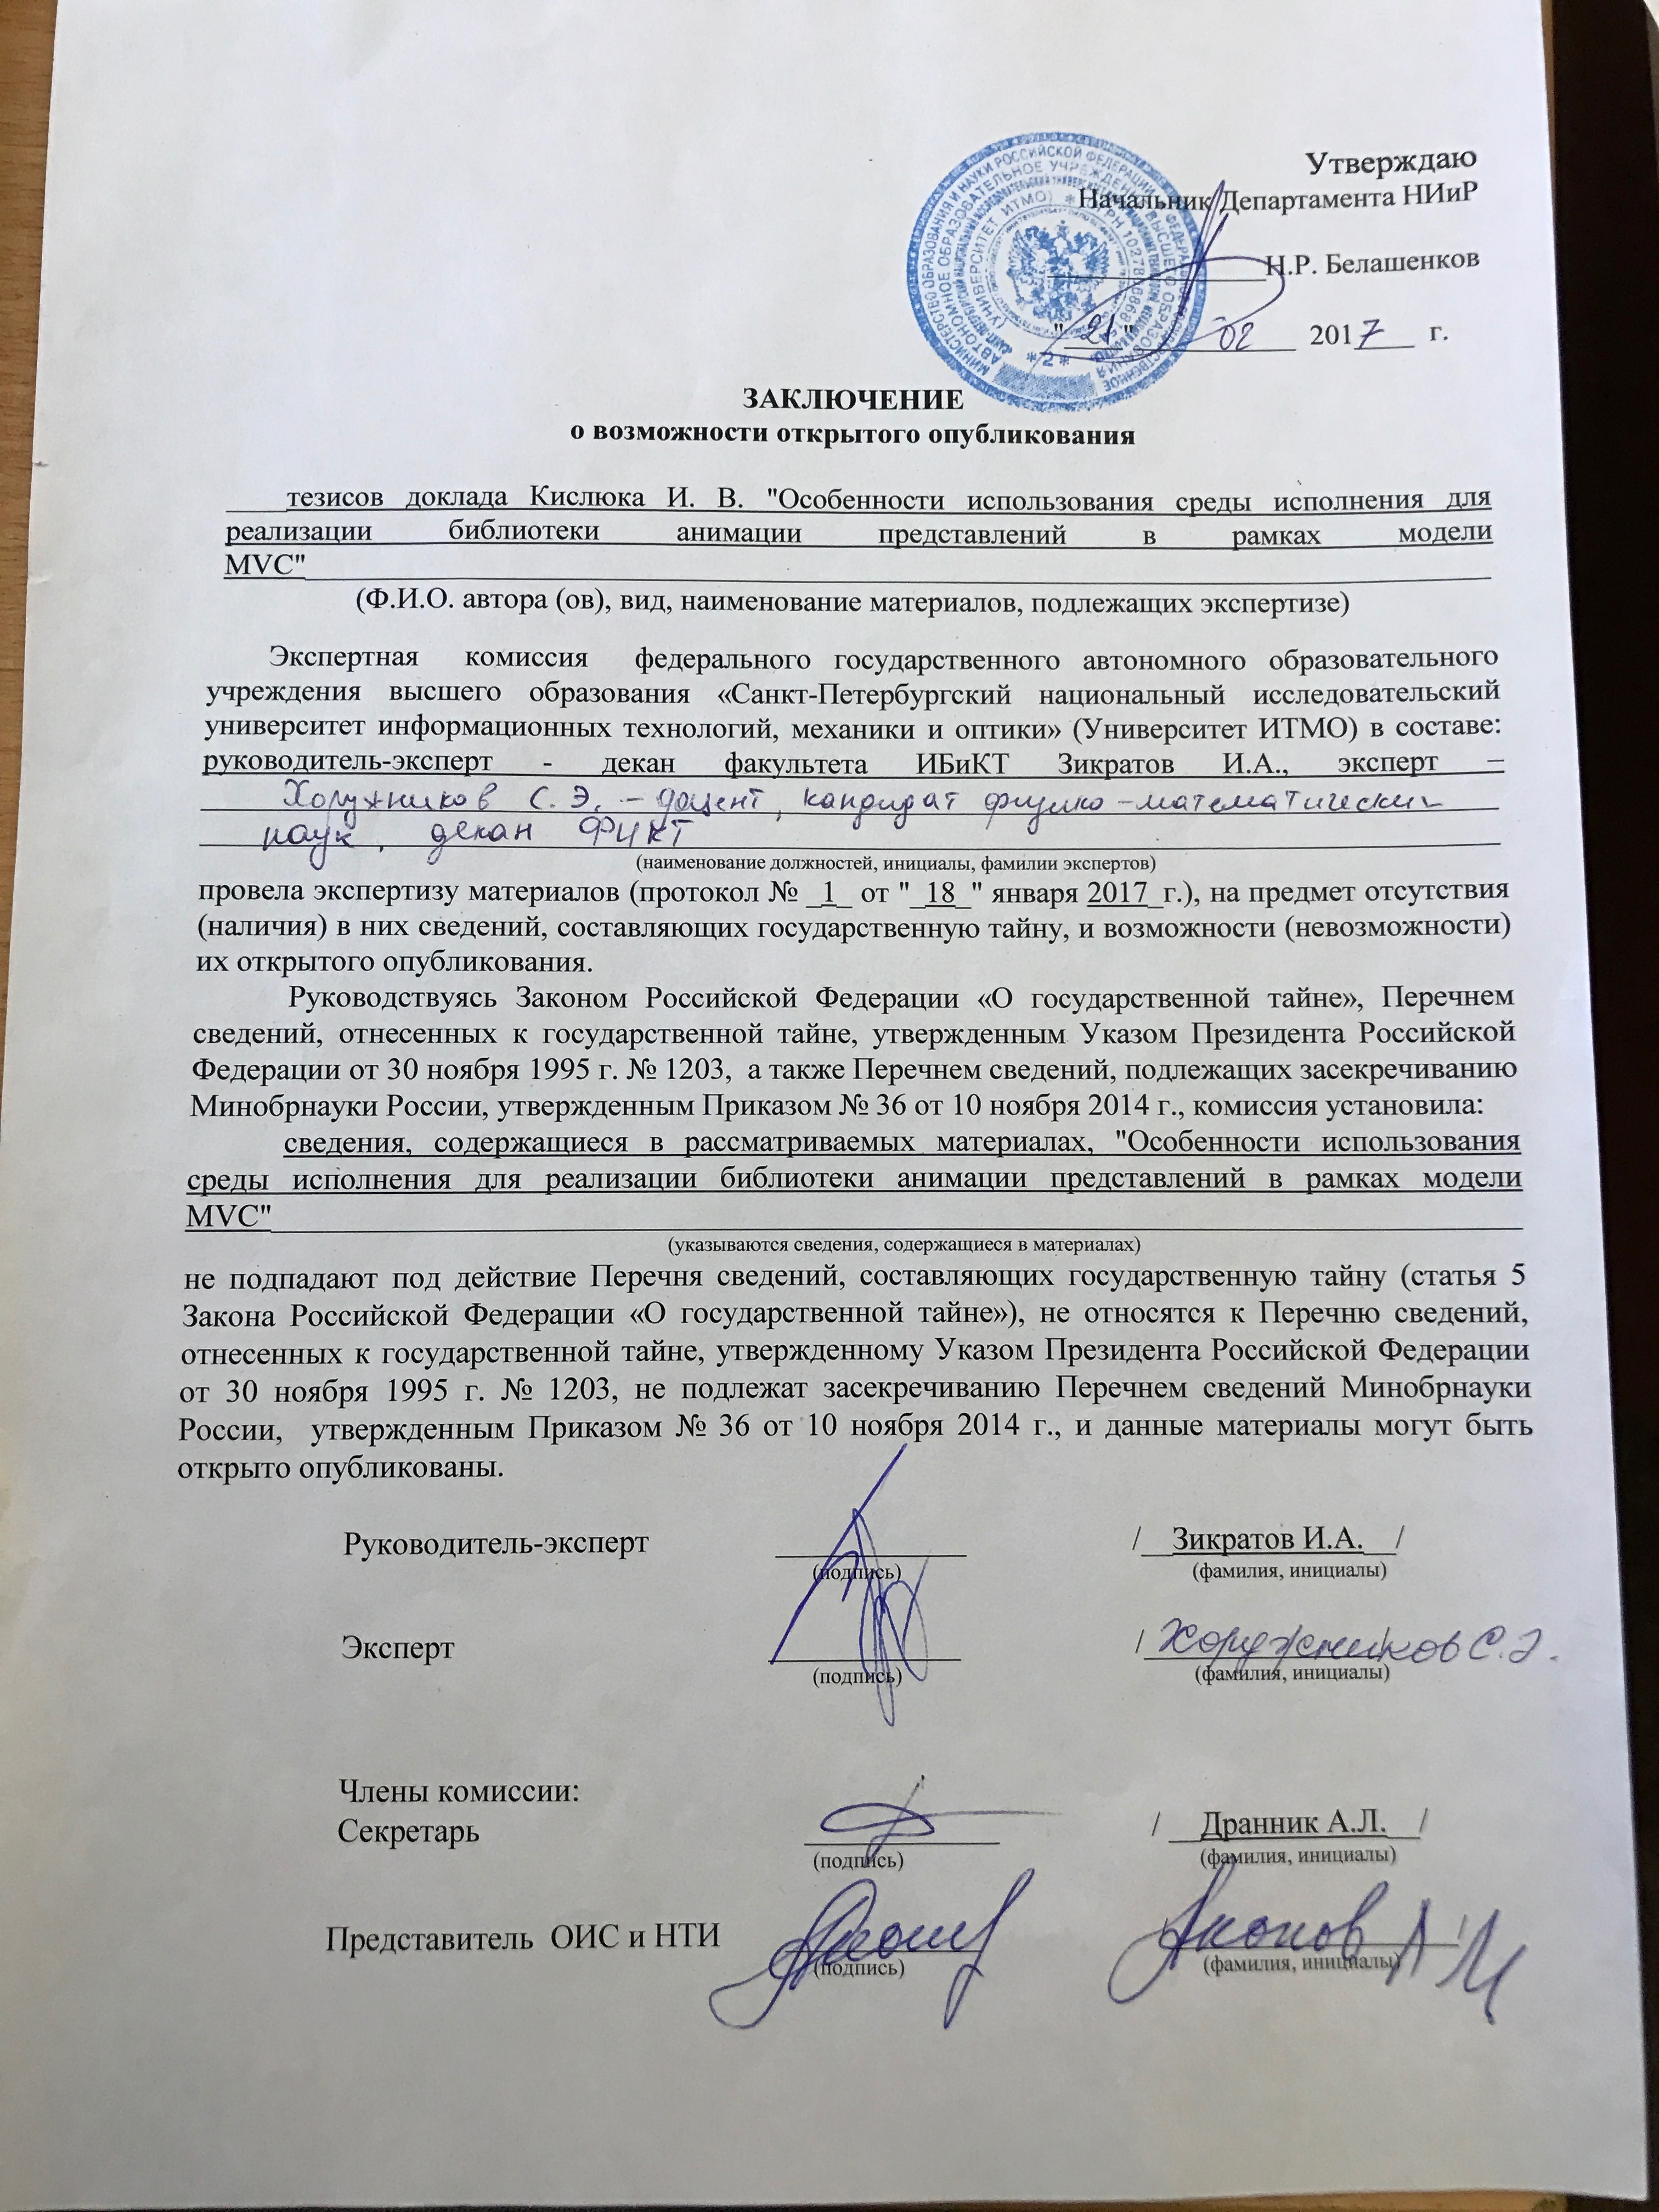 Утверждаю
Начальник Департамента НИиР
Н.Р. Белашенков
"21" 02 2017 г.
МИНИСТЕРСТВО ОБРАЗОВАНИЯ И НАУКИ РОССИЙСКОЙ ФЕДЕРАЦИИ
АВТОНОМНОЕ ОБРАЗОВАТЕЛЬНОЕ УЧРЕЖДЕНИЕ ВЫСШЕГО ОБРАЗОВАНИЯ
(УНИВЕРСИТЕТ ИТМО)
*2*
ЗАКЛЮЧЕНИЕ
о возможности открытого опубликования
тезисов доклада Кислюка И. В. "Особенности использования среды исполнения для
реализации библиотеки анимации представлений в рамках модели
MVC"
(Ф.И.О. автора (ов), вид, наименование материалов, подлежащих экспертизе)
Экспертная комиссия федерального государственного автономного образовательного
учреждения высшего образования «Санкт-Петербургский национальный исследовательский
университет информационных технологий, механики и оптики» (Университет ИТМО) в составе:
руководитель-эксперт - декан факультета ИБиКТ Зикратов И.А., эксперт –
Хоружников С. Э. – доцент, кандидат физико-математических
наук, декан ФИКТ
(наименование должностей, инициалы, фамилии экспертов)
провела экспертизу материалов (протокол № _1_ от "_18_" января 2017_г.), на предмет отсутствия
(наличия) в них сведений, составляющих государственную тайну, и возможности (невозможности)
их открытого опубликования.
Руководствуясь Законом Российской Федерации «О государственной тайне», Перечнем
сведений, отнесенных к государственной тайне, утвержденным Указом Президента Российской
Федерации от 30 ноября 1995 г. № 1203, а также Перечнем сведений, подлежащих засекречиванию
Минобрнауки России, утвержденным Приказом № 36 от 10 ноября 2014 г., комиссия установила:
сведения, содержащиеся в рассматриваемых материалах, "Особенности использования
среды исполнения для реализации библиотеки анимации представлений в рамках модели
MVC"
(указываются сведения, содержащиеся в материалах)
не подпадают под действие Перечня сведений, составляющих государственную тайну (статья 5
Закона Российской Федерации «О государственной тайне»), не относятся к Перечню сведений,
отнесенных к государственной тайне, утвержденному Указом Президента Российской Федерации
от 30 ноября 1995 г. № 1203, не подлежат засекречиванию Перечнем сведений Минобрнауки
России, утвержденным Приказом № 36 от 10 ноября 2014 г., и данные материалы могут быть
открыто опубликованы.
Руководитель-эксперт / Зикратов И.А. /
(подпись) (фамилия, инициалы)
Эксперт / Хоружников С.Э.
(подпись) (фамилия, инициалы)
Члены комиссии:
Секретарь / Дранник А.Л. /
(подпись) (фамилия, инициалы)
Представитель ОИС и НТИ Акопов А М
(подпись) (фамилия, инициалы)